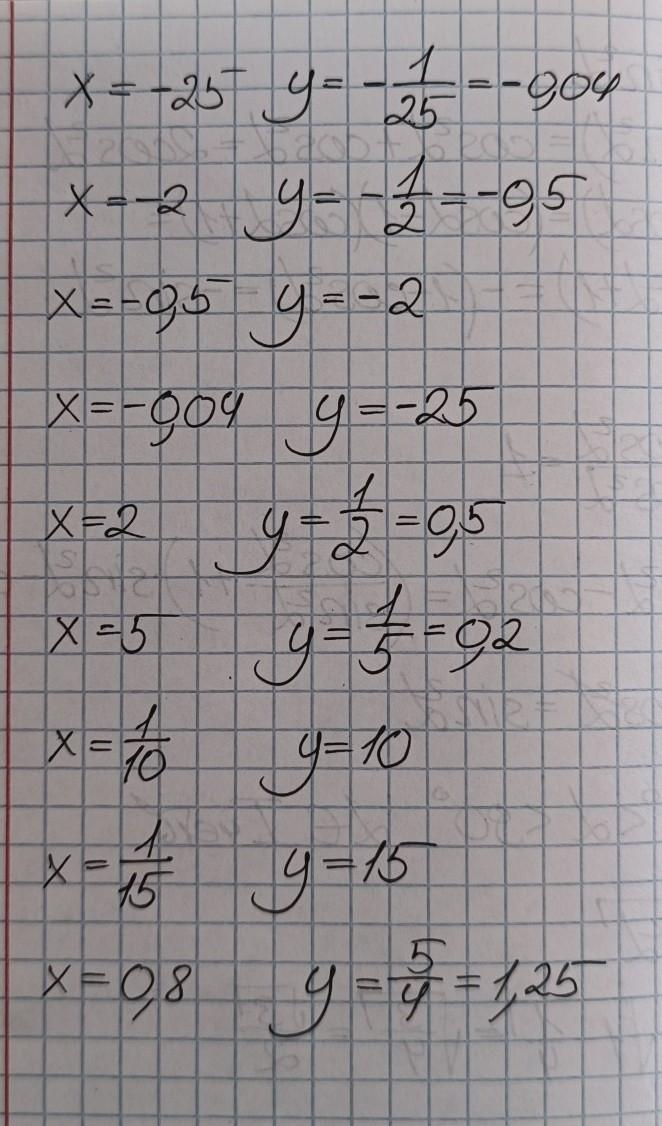 x = -25 y = -1/25 = -0,04
x = -2 y = -1/2 = -0,5
x = -0,5 y = -2
x = -0,04 y = -25
x = 2 y = 1/2 = 0,5
x = 5 y = 1/5 = 0,2
x = 1/10 y = 10
x = 1/15 y = 15
x = 0,8 y = 5/4 = 1,25